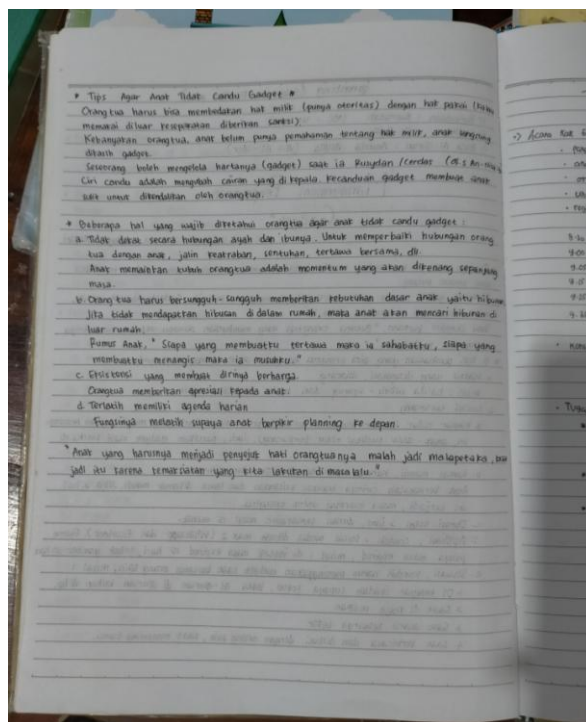 * Tips Agar Anak Tidak Candu Gadget *
Orang tua harus bisa membedakan hak milik (punya otoritas) dengan hak pakai (
memakai diluar kesepakatan diberikan sanksi)
Kebanyakan orangtua, anak belum punya pemahaman tentang hak milik, anak langsung
dikasih gadget.
Seseorang boleh mengelola hartanya (gadget) saat ia Rusydan / cerdas (Qs An-
Ciri candu adalah mengubah cairan yang di kepala. Kecanduan gadget membuat anak
sulit untuk dikendalikan oleh orangtua.
* Beberapa hal yang wajib diketahui orangtua agar anak tidak candu gadget :
a. Tidak dekat secara hubungan ayah dan ibunya. Untuk memperbaiki hubungan orang
tua dengan anak, jalin keakraban, sentuhan, tertawa bersama, dll.
Anak memainkan tubuh orangtua adalah momentum yang akan dikenang sepanjang
masa.
b. Orang tua harus bersungguh-sungguh memberikan kebutuhan dasar anak yaitu hiburan
Jika tidak mendapatkan hiburan di dalam rumah, maka anak akan mencari hiburan di
luar rumah.
Rumus Anak, "Siapa yang membuatku tertawa maka ia sahabatku, siapa yang
membuatku menangis maka ia musuhku."
c. Eksistensi yang membuat dirinya berharga.
Orangtua memberikan apresiasi kepada anak.
d. Terlatih memiliki agenda harian
Fungsinya melatih supaya anak berpikir planning ke depan.
"Anak yang harusnya menjadi penyejuk hati orangtuanya malah jadi malapetaka,
jadi itu karena kemaksiatan yang kita lakukan di masa lalu."